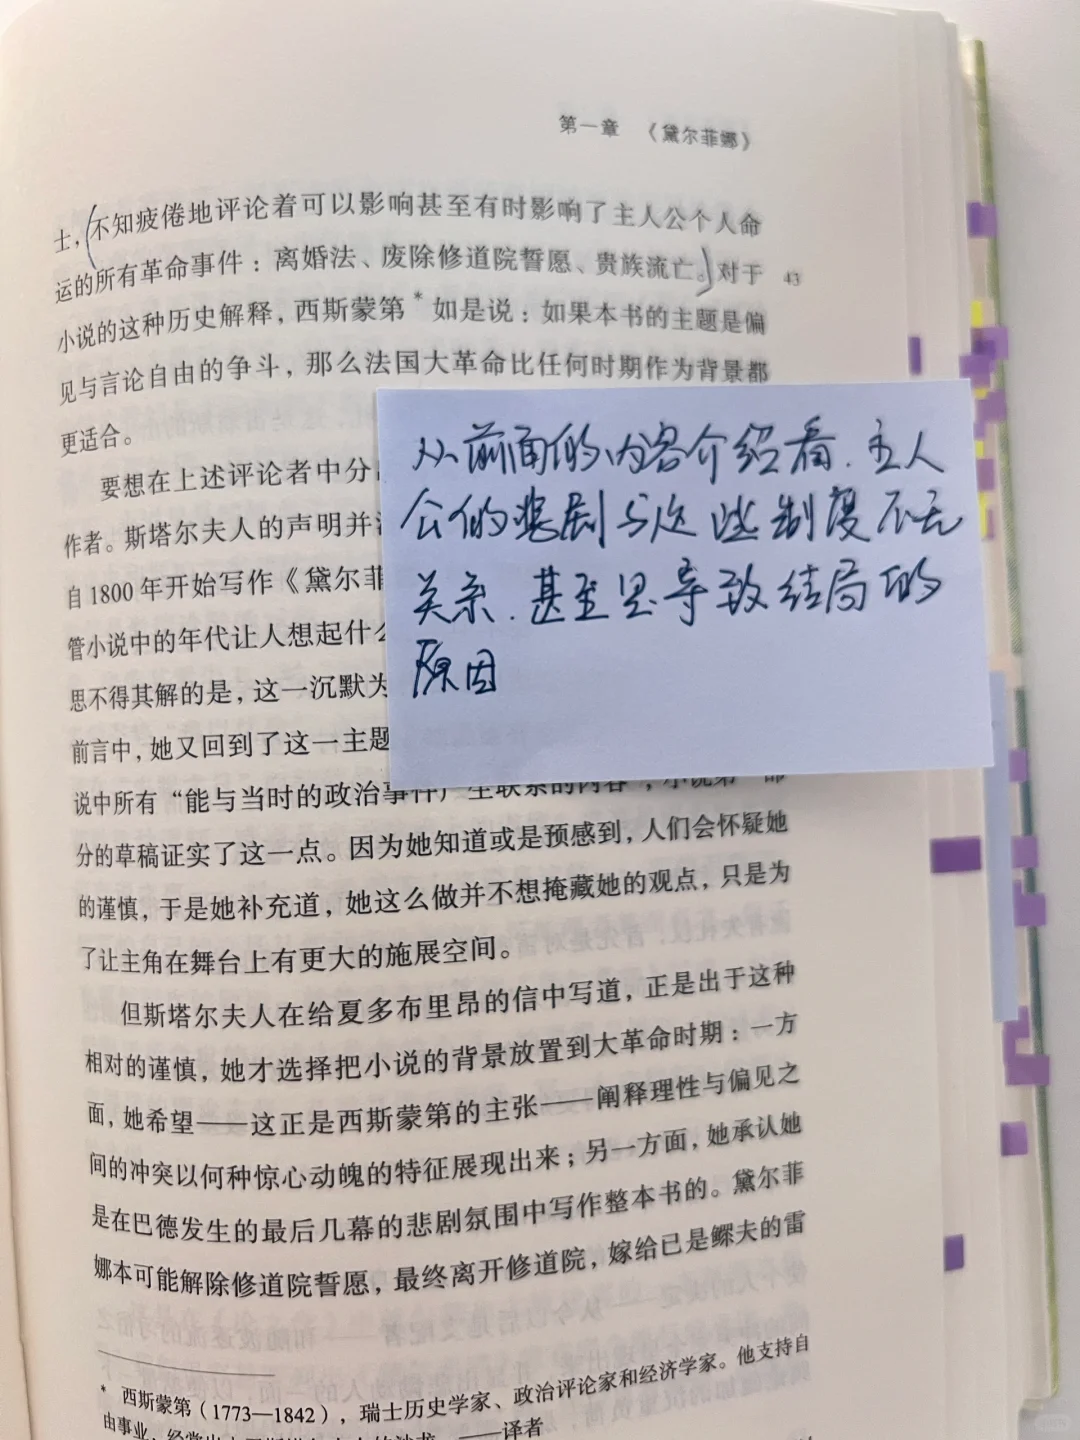 第一章 《黛尔菲娜》
士，不知疲倦地评论着可以影响甚至有时影响了主人公个人命
运的所有革命事件：离婚法、废除修道院誓愿、贵族流亡。对于
43
小说的这种历史解释，西斯蒙第*如是说：如果本书的主题是偏
见与言论自由的争斗，那么法国大革命比任何时期作为背景都
更适合。
要想在上述评论者中分
作者。斯塔尔夫人的声明并
自1800年开始写作《黛尔菲
管小说中的年代让人想起什
思不得其解的是，这一沉默为
前言中，她又回到了这一主题
从前面的内容介绍看．主人
公的悲剧与这些制度不无
关系．甚至是导致结局的
原因
说中所有“能与当时的政治事件产生联系的内容”，小说第一部
分的草稿证实了这一点。因为她知道或是预感到，人们会怀疑她
的谨慎，于是她补充道，她这么做并不想掩藏她的观点，只是为
了让主角在舞台上有更大的施展空间。
但斯塔尔夫人在给夏多布里昂的信中写道，正是出于这种
相对的谨慎，她才选择把小说的背景放置到大革命时期：一方
面，她希望——这正是西斯蒙第的主张——阐释理性与偏见之
间的冲突以何种惊心动魄的特征展现出来；另一方面，她承认她
是在巴德发生的最后几幕的悲剧氛围中写作整本书的。黛尔菲
娜本可能解除修道院誓愿，最终离开修道院，嫁给已是鳏夫的雷
* 西斯蒙第（1773—1842），瑞士历史学家、政治评论家和经济学家。他支持自
由事业，经常出 ——译者